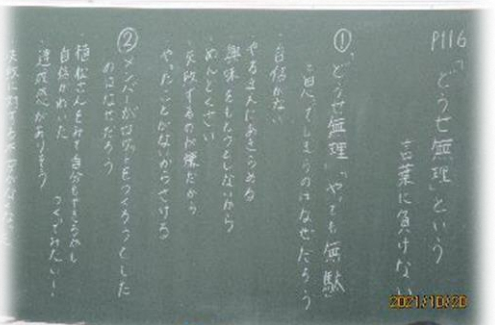 P116
「どうせ無理」という
言葉に負けない
①「どうせ無理」「やっても無駄」
と思ってしまうのはなぜだろう
・自信がない
・やるまえにあきらめる
・興味をもとうとしないから
・めんどくさい
・失敗するのが嫌だから
・やったことがないからさける
②メンバーがロケットをつくろうとした
のはなぜだろう
・植松さんをみて自分もできるかも
自信がわいた つくってみたい!
・達成感がありそう
失敗に対する
2021/10/20